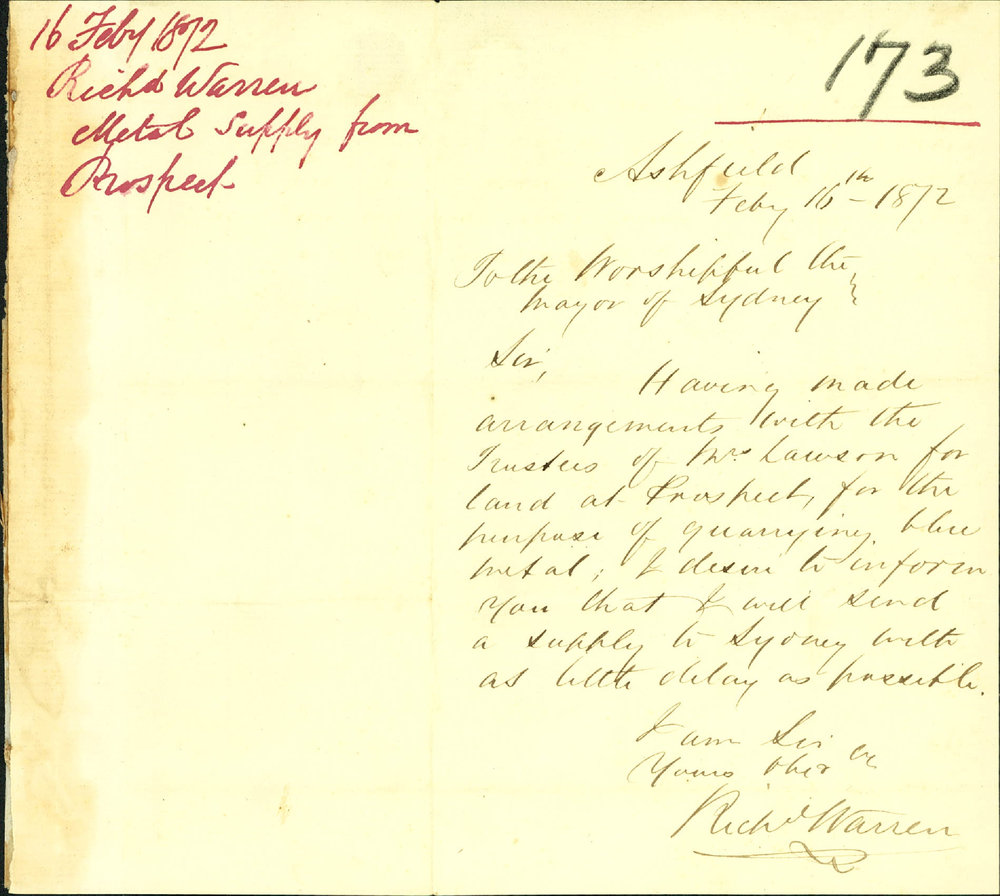 16 Feby 1872
Richd Warren
Metal Supply from
Prospect
173
Ashfield
Feby 16th - 1872
To the Worshipful the
Mayor of Sydney
Sir,
Having made
arrangements with the
Trustees of Mrs Lawson for
land at Prospect, for the
purpose of quarrying blue
metal; I desire to inform
You that I will send
a supply to Sydney with
as little delay as possible.
I am Sir
Yours
Richd Warren